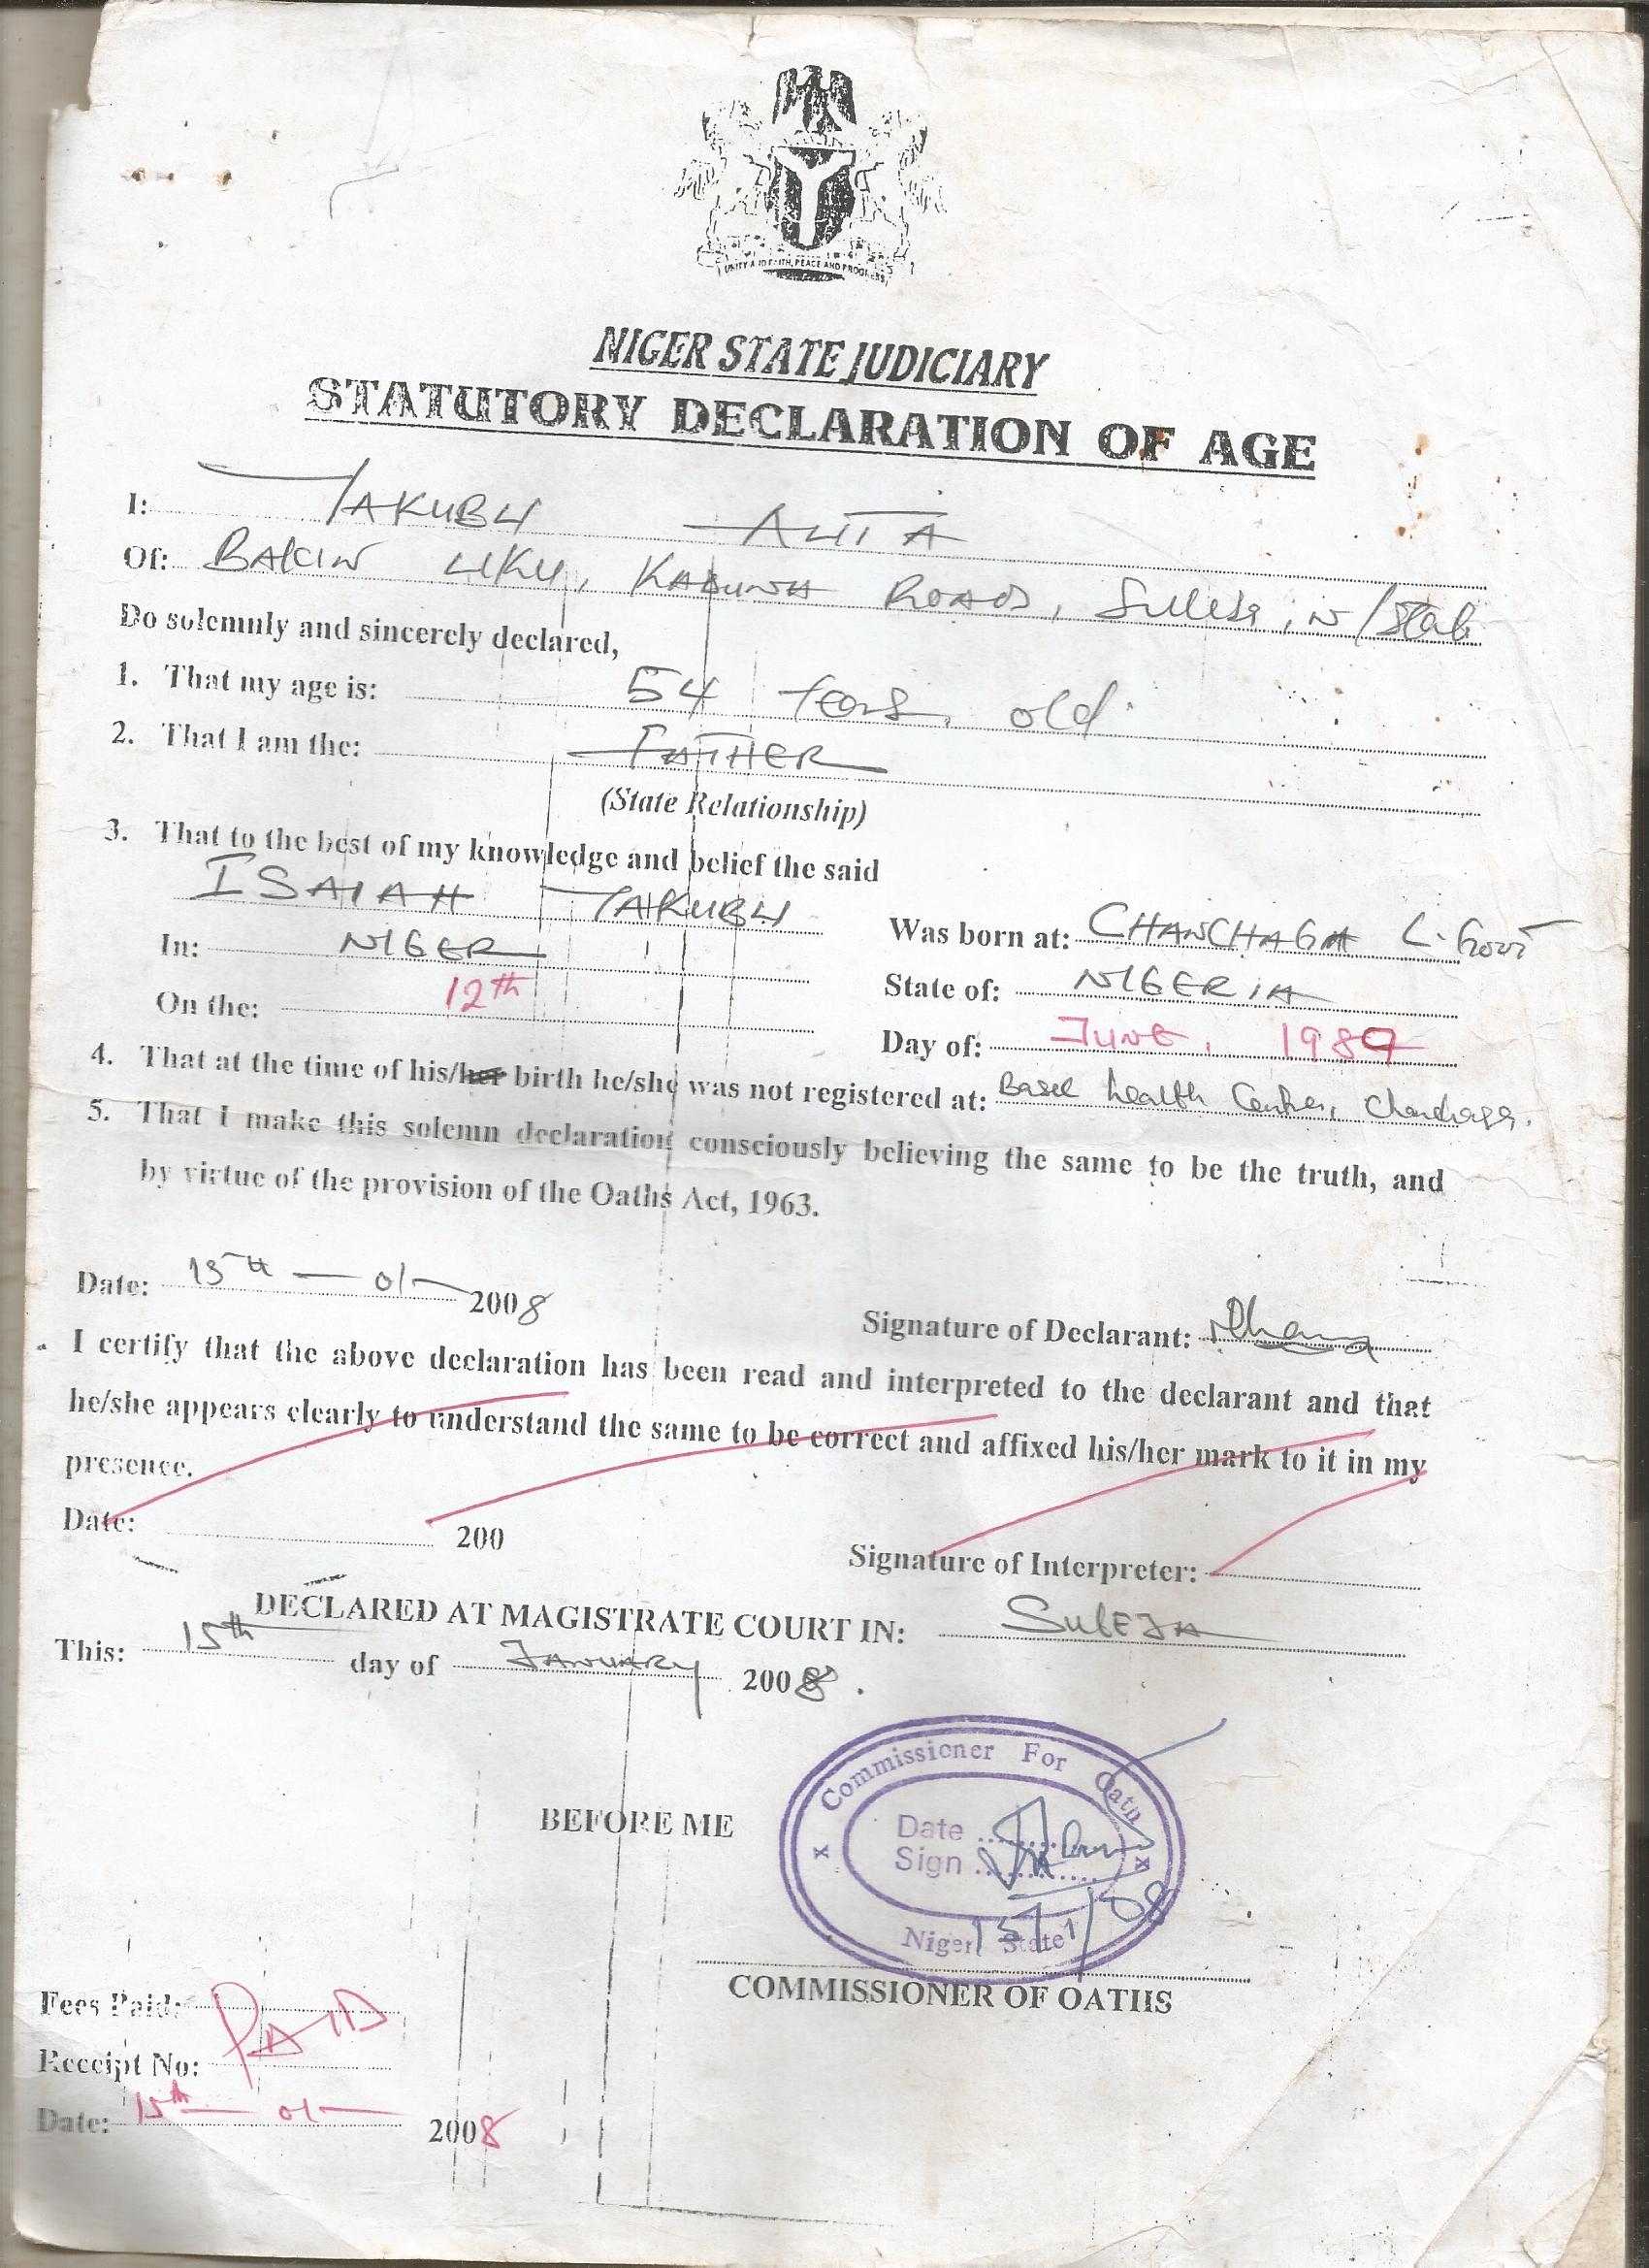 UNITY AND FAITH, PEACE AND PROGRESS
NIGER STATE JUDICIARY
STATUTORY DECLARATION OF AGE
I: YAKUBU
Of: BAKIN UKU, KADUNA ROAD, Suleja, N/State
Do solemnly and sincerely declared,
1. That my age is: 54 Years old
2. That I am the: FATHER
(State Relationship)
3. That to the best of my knowledge and belief the said
ISAIAH YAKUBU Was born at: CHANCHAGA L. Govt
In: NIGER State of: NIGERIA
On the: 12th Day of: JUNE, 1989
4. That at the time of his/her birth he/she was not registered at: health Chanchaga.
5. That I make this solemn declaration consciously believing the same to be the truth, and
by virtue of the provision of the Oaths Act, 1963.
Date: 15th — 01 — 2008 Signature of Declarant:
I certify that the above declaration has been read and interpreted to the declarant and that
he/she appears clearly to understand the same to be correct and affixed his/her mark to it in my
presence.
Date: 200 Signature of Interpreter:
DECLARED AT MAGISTRATE COURT IN: SULEJA
This: 15th day of JANUARY 2008.
Commissioner For Oath
BEFORE ME
Date
Sign
15/1/08
Niger State
COMMISSIONER OF OATHS
Fees Paid: PAID
Receipt No:
Date: 15th — 01 — 2008